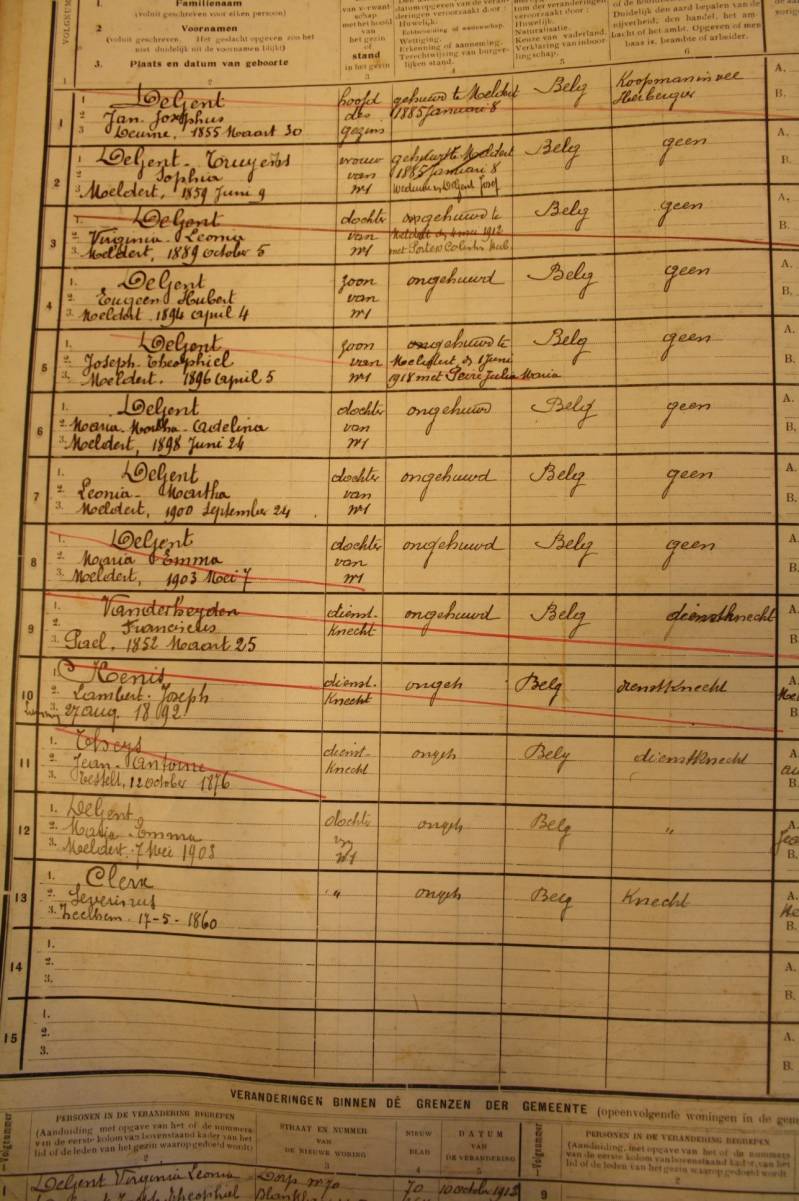 1. Familienaam
(voluit geschreven voor eiken persoon)
2 Voornamen
(voluit geschreven. Het geslacht opgeven zoo het
niet duidelijk uit de voornamen blijkt)
3. Plaats en datum van geboorte
van verwant-
schap
met het hoofd
van
het gezin
of
stand
in het gezin
Erkenning of aanneming.
lijken stand.
Huwelijk.
Naturalisatie.
Keuze van vaderland.
Verklaring van inboor-
lingschap.
Duidelijk den aard bepalen van de
nijverheid; den handel, het am-
bacht of het ambt. Opgeven of men
baas is, beambte of arbeider.
1 2 3 4 5 6
1
1 DeGent
2 Jan-Josephus
3 Deurne, 1855 Maart 30
hoofd
des
gezins
gehuwd te Meldert
1885 januari 8
Belg
Koopman in vee
Herbergier
A.
B.
2
1 DeGent-Truyens
2 Sophia
3 Meldert, 1859 Juni 9
vrouw
van
nr1
gehuwd te Meldert
1885 januari 8
Belg
geen
A.
B.
3
1. DeGent
2. Virginia-Leonia
3. Meldert, 1889 october 5
dochter
van
nr1
ongehuwd te
Meldert den 4 mei 1912
Belg
geen
A.
B.
4
1. DeGent
2. Eugeen Hubert
3. Meldert 1894 april 4
zoon
van
nr1
ongehuwd
Belg
geen
A.
B.
5
1. DeGent
2. Joseph-Theophiel
3. Meldert. 1896 april 5
zoon
van
nr1
ongehuwd te
1 Juni
1918 met Julia Maria
Belg
geen
A.
B.
6
1. DeGent
2. Maria-Martha-Adelina
3. Meldert, 1898 Juni 24
dochter
van
nr1
ongehuwd
Belg
geen
A.
B.
7
1. DeGent
2. Leonia-Martha
3. Meldert, 1900 September 24
dochter
van
nr1
ongehuwd
Belg
geen
A.
B.
8
1. DeGent
2. Maria Emma
3. Meldert, 1903 Mei 7
dochter
van
nr1
ongehuwd
Belg
geen
A.
B.
9
1. Vanderheyden
2. Franciscus
3. Pael, 1852 Maart 25
dienst.
Knecht
ongehuwd
Belg
dienstknecht
A.
B.
10
1. Kenis
2. Lambert-Joseph
27 aug. 1892
dienst.
Knecht
ongeh
Belg
dienstknecht
A.
B.
11
1. Theys
2. Jean-Antoine
3. Testelt, 12 october 1876
dienst-
Knecht
ongeh
Belg
dienstknecht
A.
B.
12
1. DeGent
2. Maria-Emma
3. Meldert, 7 Mei 1903
dochter
van
nr1
ongeh
Belg
"
A.
B.
13
1. Clerx
2. Severinus
3. Zeelhem. 17-5-1860
"
ongeh
Belg
Knecht
A.
B.
14
1.
2.
3.
A.
B.
15
1.
2.
3.
A.
B.
VERANDERINGEN BINNEN DE GRENZEN DER GEMEENTE (opeenvolgende woningen in de
Volgnummer
PERSONEN IN DE VERANDERING BEGREPEN
(Aanduiding, met opgave van het of de nummers
van de eerste kolom van bovenstaand kader van het
lid of de leden van het gezin waarop gedoeld wordt)
2
STRAAT EN NUMMER
VAN
DE NIEUWE WONING
3
NIEUW
BLAD
4
DATUM
VAN
DE VERANDERING
5
Volgnummer
PERSONEN IN DE VERANDERING BEGREPEN
(Aanduiding, met opgave van het of de nummers
van de eerste kolom van bovenstaand kader van het
lid of de leden van het gezin waarop gedoeld wordt)
2
1
DeGent Virginia Leonia
Dorp nr 70
70
10 october 1912
9